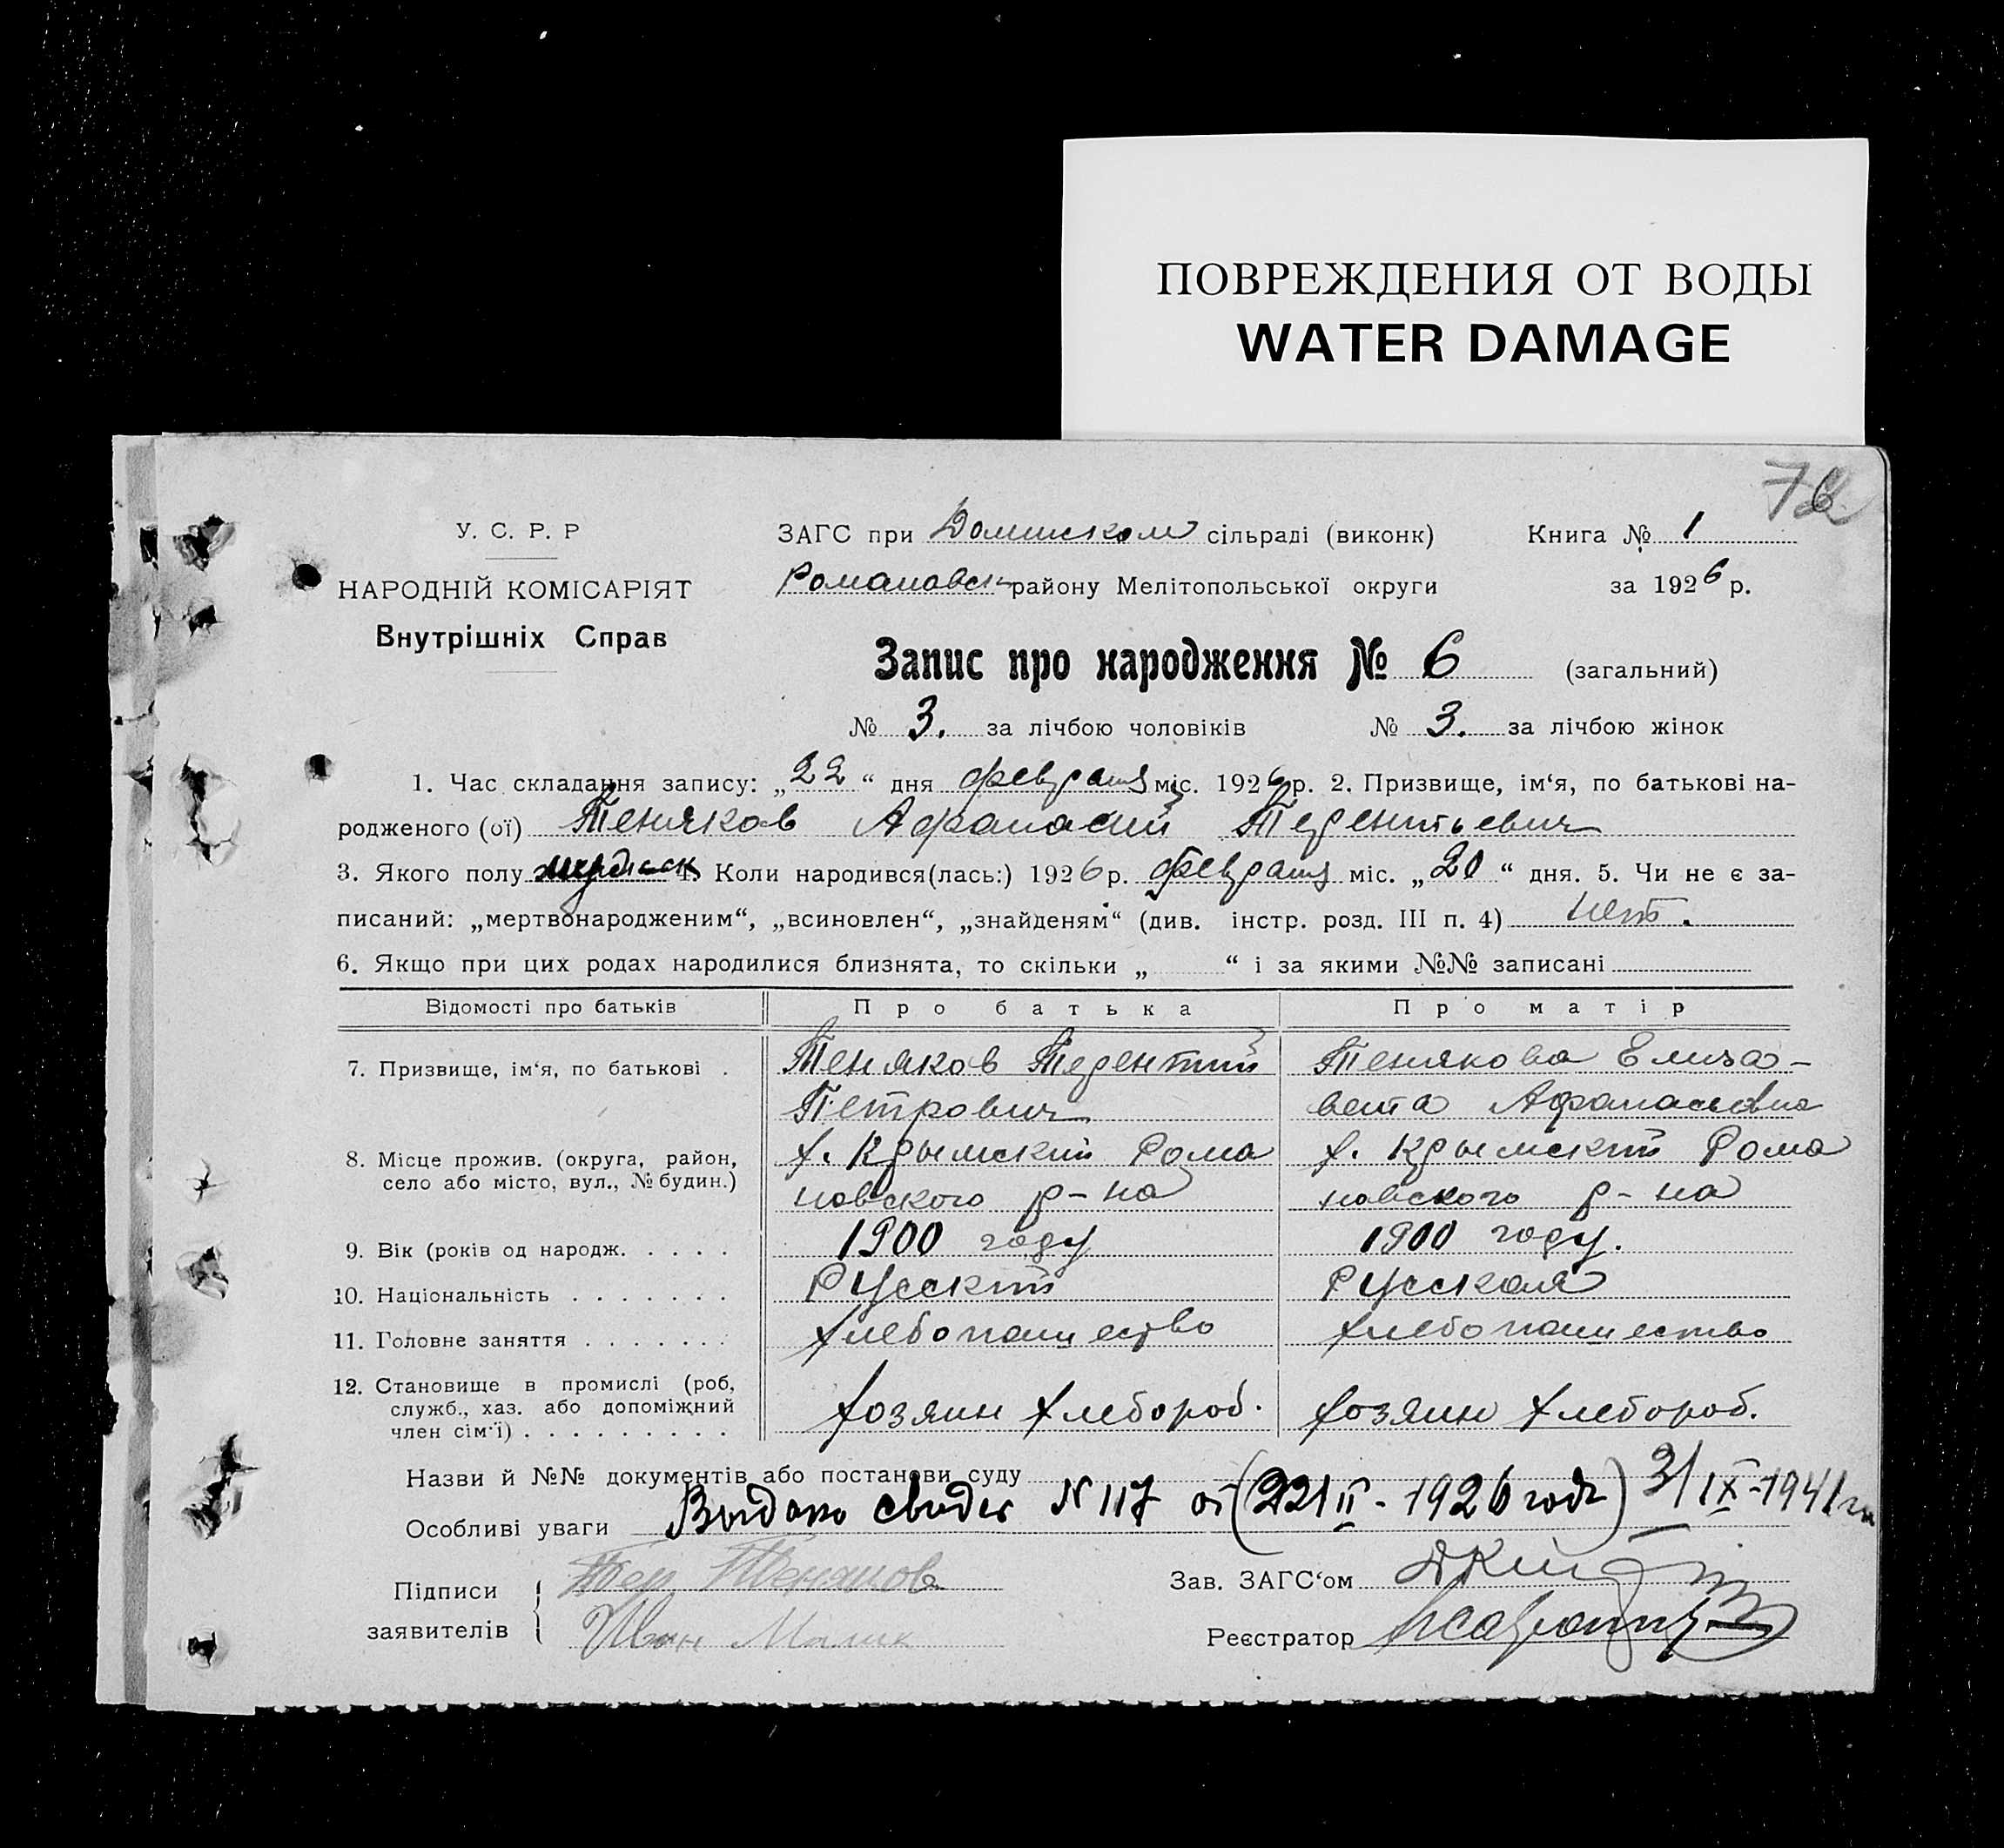 ПОВРЕЖДЕНИЯ ОТ ВОДЫ
WATER DAMAGE
У. С. Р. Р
НАРОДНІЙ КОМІСАРІЯТ
Внутрішніх Справ
ЗАГС при сільраді (виконк)
Романовск району Мелітопольської округи
Книга № 1
за 1926 р.
Запис про народження № 6 (загальний)
№ 3. за лічбою чоловіків № 3. за лічбою жінок
1. Час складання запису: „22“ дня февраля міс. 1926 р. 2. Призвище, ім‘я, по батькові на-
родженого (ої) Теняков Афанасий Терентьевич
3. Якого полу 4. Коли народився(лась:) 1926 р. февраля міс. „20“ дня. 5. Чи не є за-
писаний: „мертвонародженим“, „всиновлен“, „знайденям“ (див. інстр. розд. III п. 4) Нет.
6. Якщо при цих родах народилися близнята, то скільки „ “ і за якими №№ записані
Відомості про батьків Про батька Про матір
7. Призвище, ім‘я, по батькові . Теняков Терентий Тенякова Елиза-
Петрович вета Афанасьевна
8. Місце прожив. (округа, район, х. Крымский Рома х. Крымский Рома
село або місто, вул., № будин.) новского р-на новского р-на
9. Вік (років од народж. . . . . 1900 году 1900 году.
10. Національність . . . . . . . Русский Русская
11. Головне заняття . . . . . . . Хлебопашество Хлебопашество
12. Становище в промислі (роб,
служб., хаз. або допоміжний хозяин хлебороб. хозяин хлебороб.
член сім‘ї) . . . . . . . . .
Назви й №№ документів або постанови суду
Особливі уваги Выдано свидет N 117 от (22/II - 1926 года) 3/IX-1941 г.
Підписи Тер Теняков
заявителів Иван
Зав. ЗАГС‘ом
Реєстратор